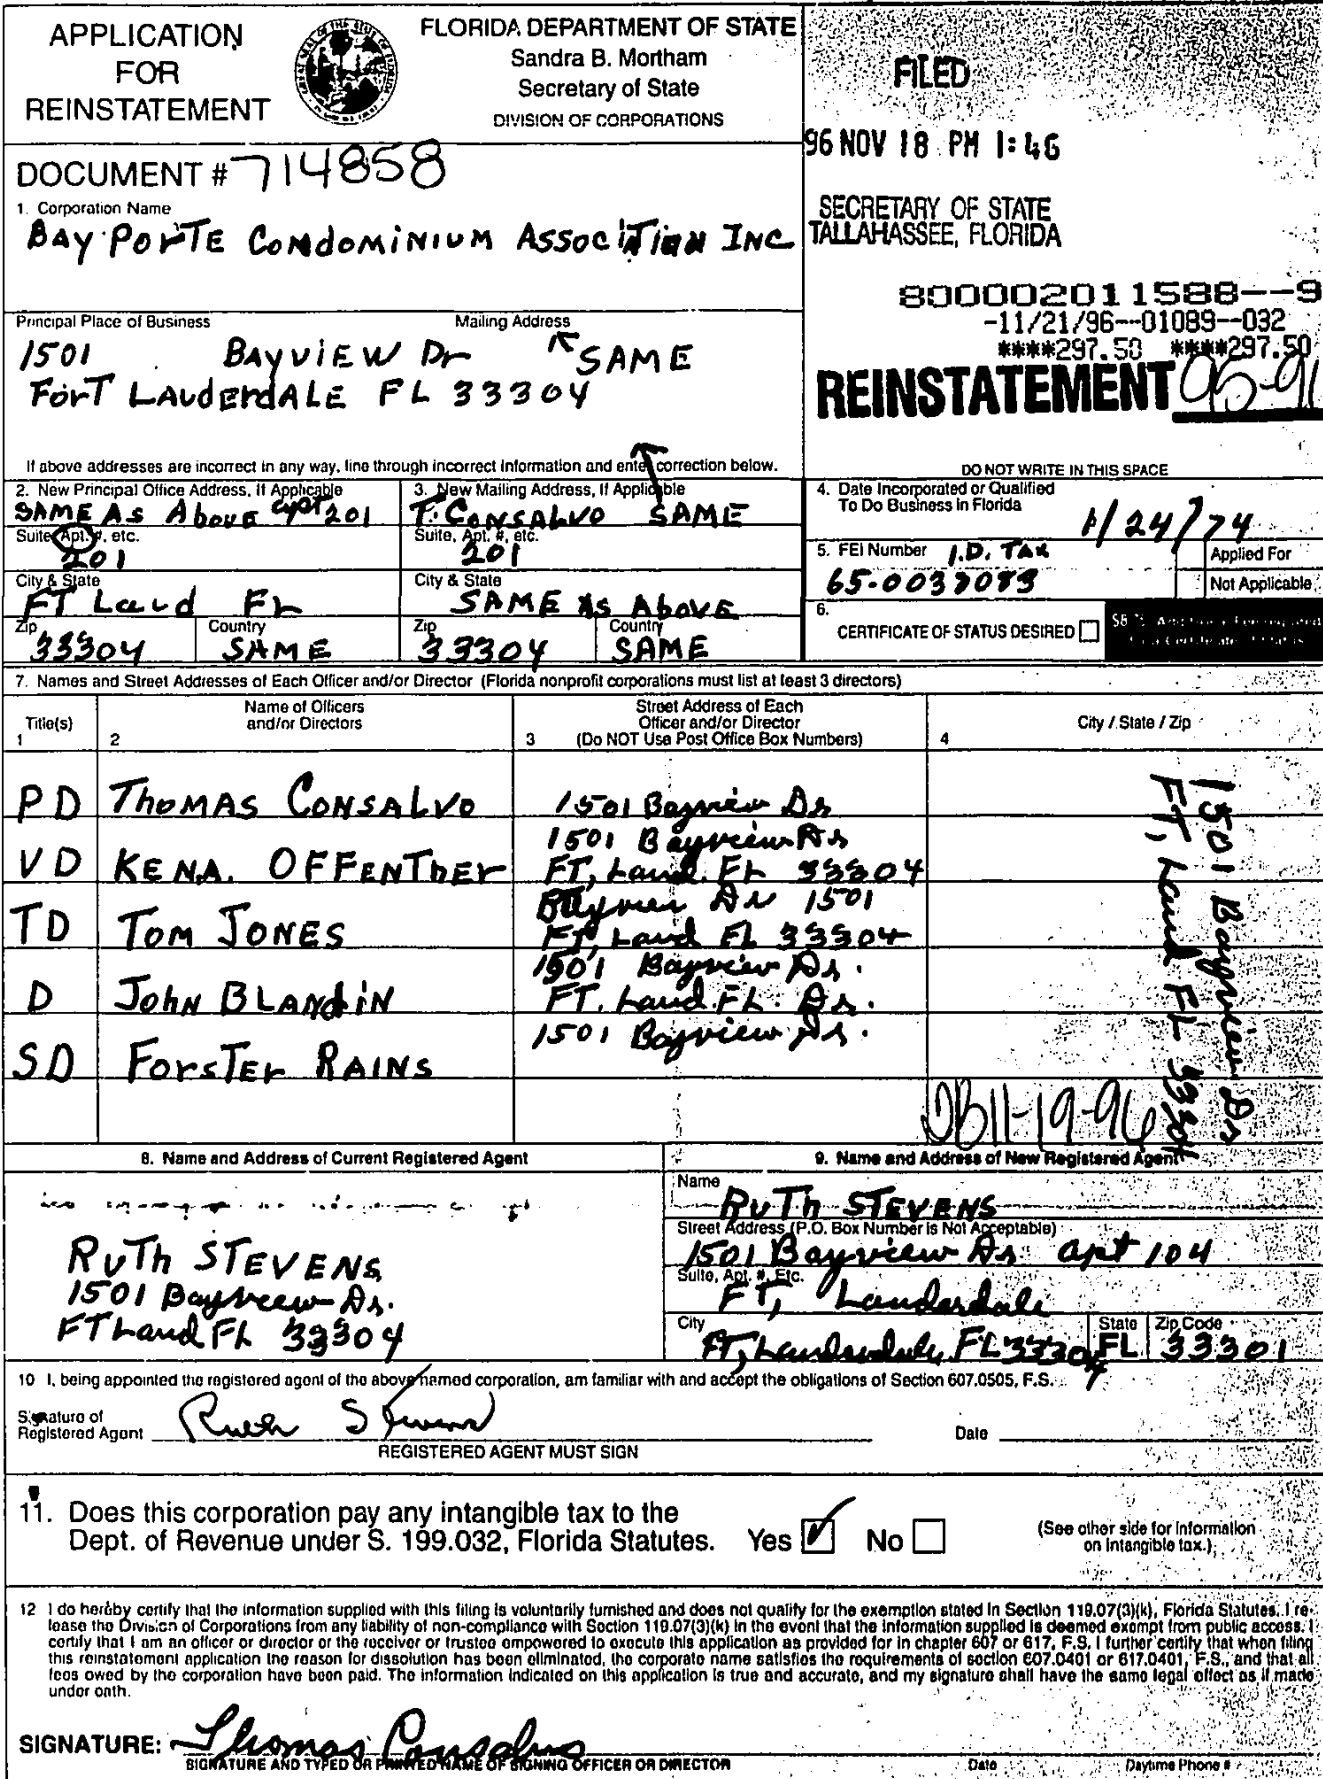 APPLICATION
FOR
REINSTATEMENT
FLORIDA DEPARTMENT OF STATE
Sandra B. Mortham
Secretary of State
DIVISION OF CORPORATIONS
FILED
96 NOV 18 PM 1:46
SECRETARY OF STATE
TALLAHASSEE, FLORIDA
DOCUMENT # 714858
1. Corporation Name
BAY PORTE CONDOMINIUM ASSOCIATION INC
800002011588--9
-11/21/96--01089--032
****297.50 ****297.50
REINSTATEMENT
Principal Place of Business Mailing Address
1501 BAYVIEW Dr SAME
FORT LAUDERDALE FL 33304
If above addresses are incorrect in any way, line through incorrect information and enter correction below.
DO NOT WRITE IN THIS SPACE
2. New Principal Office Address, If Applicable
SAME AS ABOVE apt 201
Suite, Apt. #, etc.
201
City & State
FT Laud FL
Zip Country
33304 SAME
3. New Mailing Address, If Applicable
T. CONSALVO SAME
Suite, Apt. #, etc.
201
City & State
SAME AS ABOVE
Zip Country
33304 SAME
4. Date Incorporated or Qualified
To Do Business in Florida
1/24/74
5. FEI Number I.D. TAX
Applied For
Not Applicable
6.
CERTIFICATE OF STATUS DESIRED
7. Names and Street Addresses of Each Officer and/or Director (Florida nonprofit corporations must list at least 3 directors)
Title(s)
1
Name of Officers
and/or Directors
2
Street Address of Each
Officer and/or Director
3 (Do NOT Use Post Office Box Numbers)
City / State / Zip
4
PD THOMAS CONSALVO 1501 Bayview Dr
1501 Bayview Dr
VD KEN A. OFFENTHER FT, Laud. FL 33304
Bayview Dr 1501
TD TOM JONES FT, Laud FL 33304
1501 Bayview Dr.
D John BLANDIN FT. Laud. FL. Dr.
1501 Bayview Dr.
SD FORSTER RAINS
1501 Bayview Dr
FT, Laud FL 33304
DB 11-19-96
8. Name and Address of Current Registered Agent
RUTH STEVENS
1501 Bayview Dr.
FT Laud FL 33304
9. Name and Address of New Registered Agent
Name
RUTH STEVENS
Street Address (P.O. Box Number is Not Acceptable)
1501 Bayview Dr apt 104
Suite, Apt. #, Etc.
FT, Lauderdale
City State Zip Code
FT, Lauderdale, FL 33304 FL 33301
10 I, being appointed the registered agent of the above named corporation, am familiar with and accept the obligations of Section 607.0505, F.S.
Signature of
Registered Agent Ruth Stevens Date
REGISTERED AGENT MUST SIGN
11. Does this corporation pay any intangible tax to the
Dept. of Revenue under S. 199.032, Florida Statutes. Yes No
(See other side for information
on intangible tax.)
12 I do hereby certify that the information supplied with this filing is voluntarily furnished and does not qualify for the exemption stated in Section 119.07(3)(k), Florida Statutes. I re-
lease the Division of Corporations from any liability of non-compliance with Section 119.07(3)(k) in the event that the information supplied is deemed exempt from public access. I
certify that I am an officer or director or the receiver or trustee empowered to execute this application as provided for in chapter 607 or 617, F.S. I further certify that when filing
this reinstatement application the reason for dissolution has been eliminated, the corporate name satisfies the requirements of section 607.0401 or 617.0401, F.S., and that all
fees owed by the corporation have been paid. The information indicated on this application is true and accurate, and my signature shall have the same legal effect as if made
under oath.
SIGNATURE: Thomas Consalvo
SIGNATURE AND TYPED OR PRINTED NAME OF SIGNING OFFICER OR DIRECTOR Date Daytime Phone #